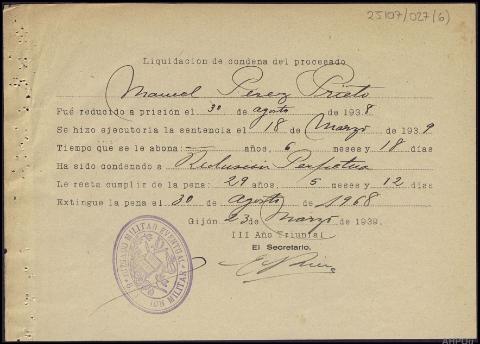 25107/027(6)
Liquidacion de condena del procesado
Manuel Pérez Prieto
Fué reducido a prisión el 30 de agosto de 1938
Se hizo ejecutoria la sentencia el 18 de Marzo de 1939
Tiempo que se le abona: años, 6 meses y 18 días
Ha sido condenado a Reclusión Perpetua
Le resta cumplir de la pena: 29 años, 5 meses y 12 días
Extingue la pena el 30 de Agosto de 1968
Gijón 23 Marzo de 1939.
III Año Triunfal
El Secretario.
MILITAR EVENTUAL
MILITAR
AHPOu